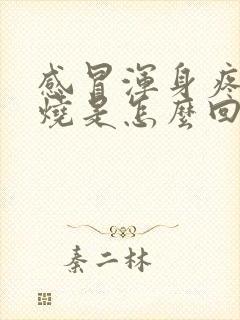 感冒渾身疼
燒是怎麼回
秦二林